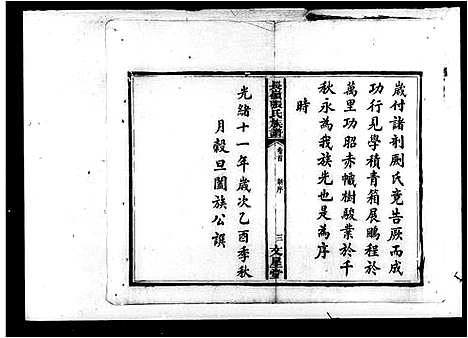 歲付諸剞劂氏竟告厥而成
功行見學積青箱展鵬程於
萬里功昭赤幟樹駿業於千
秋永為我族光也是為序
時
長嶺張氏族譜
卷首
新序
三
文星堂
光緒十一年歲次乙酉季秋
月穀旦闔族公譔